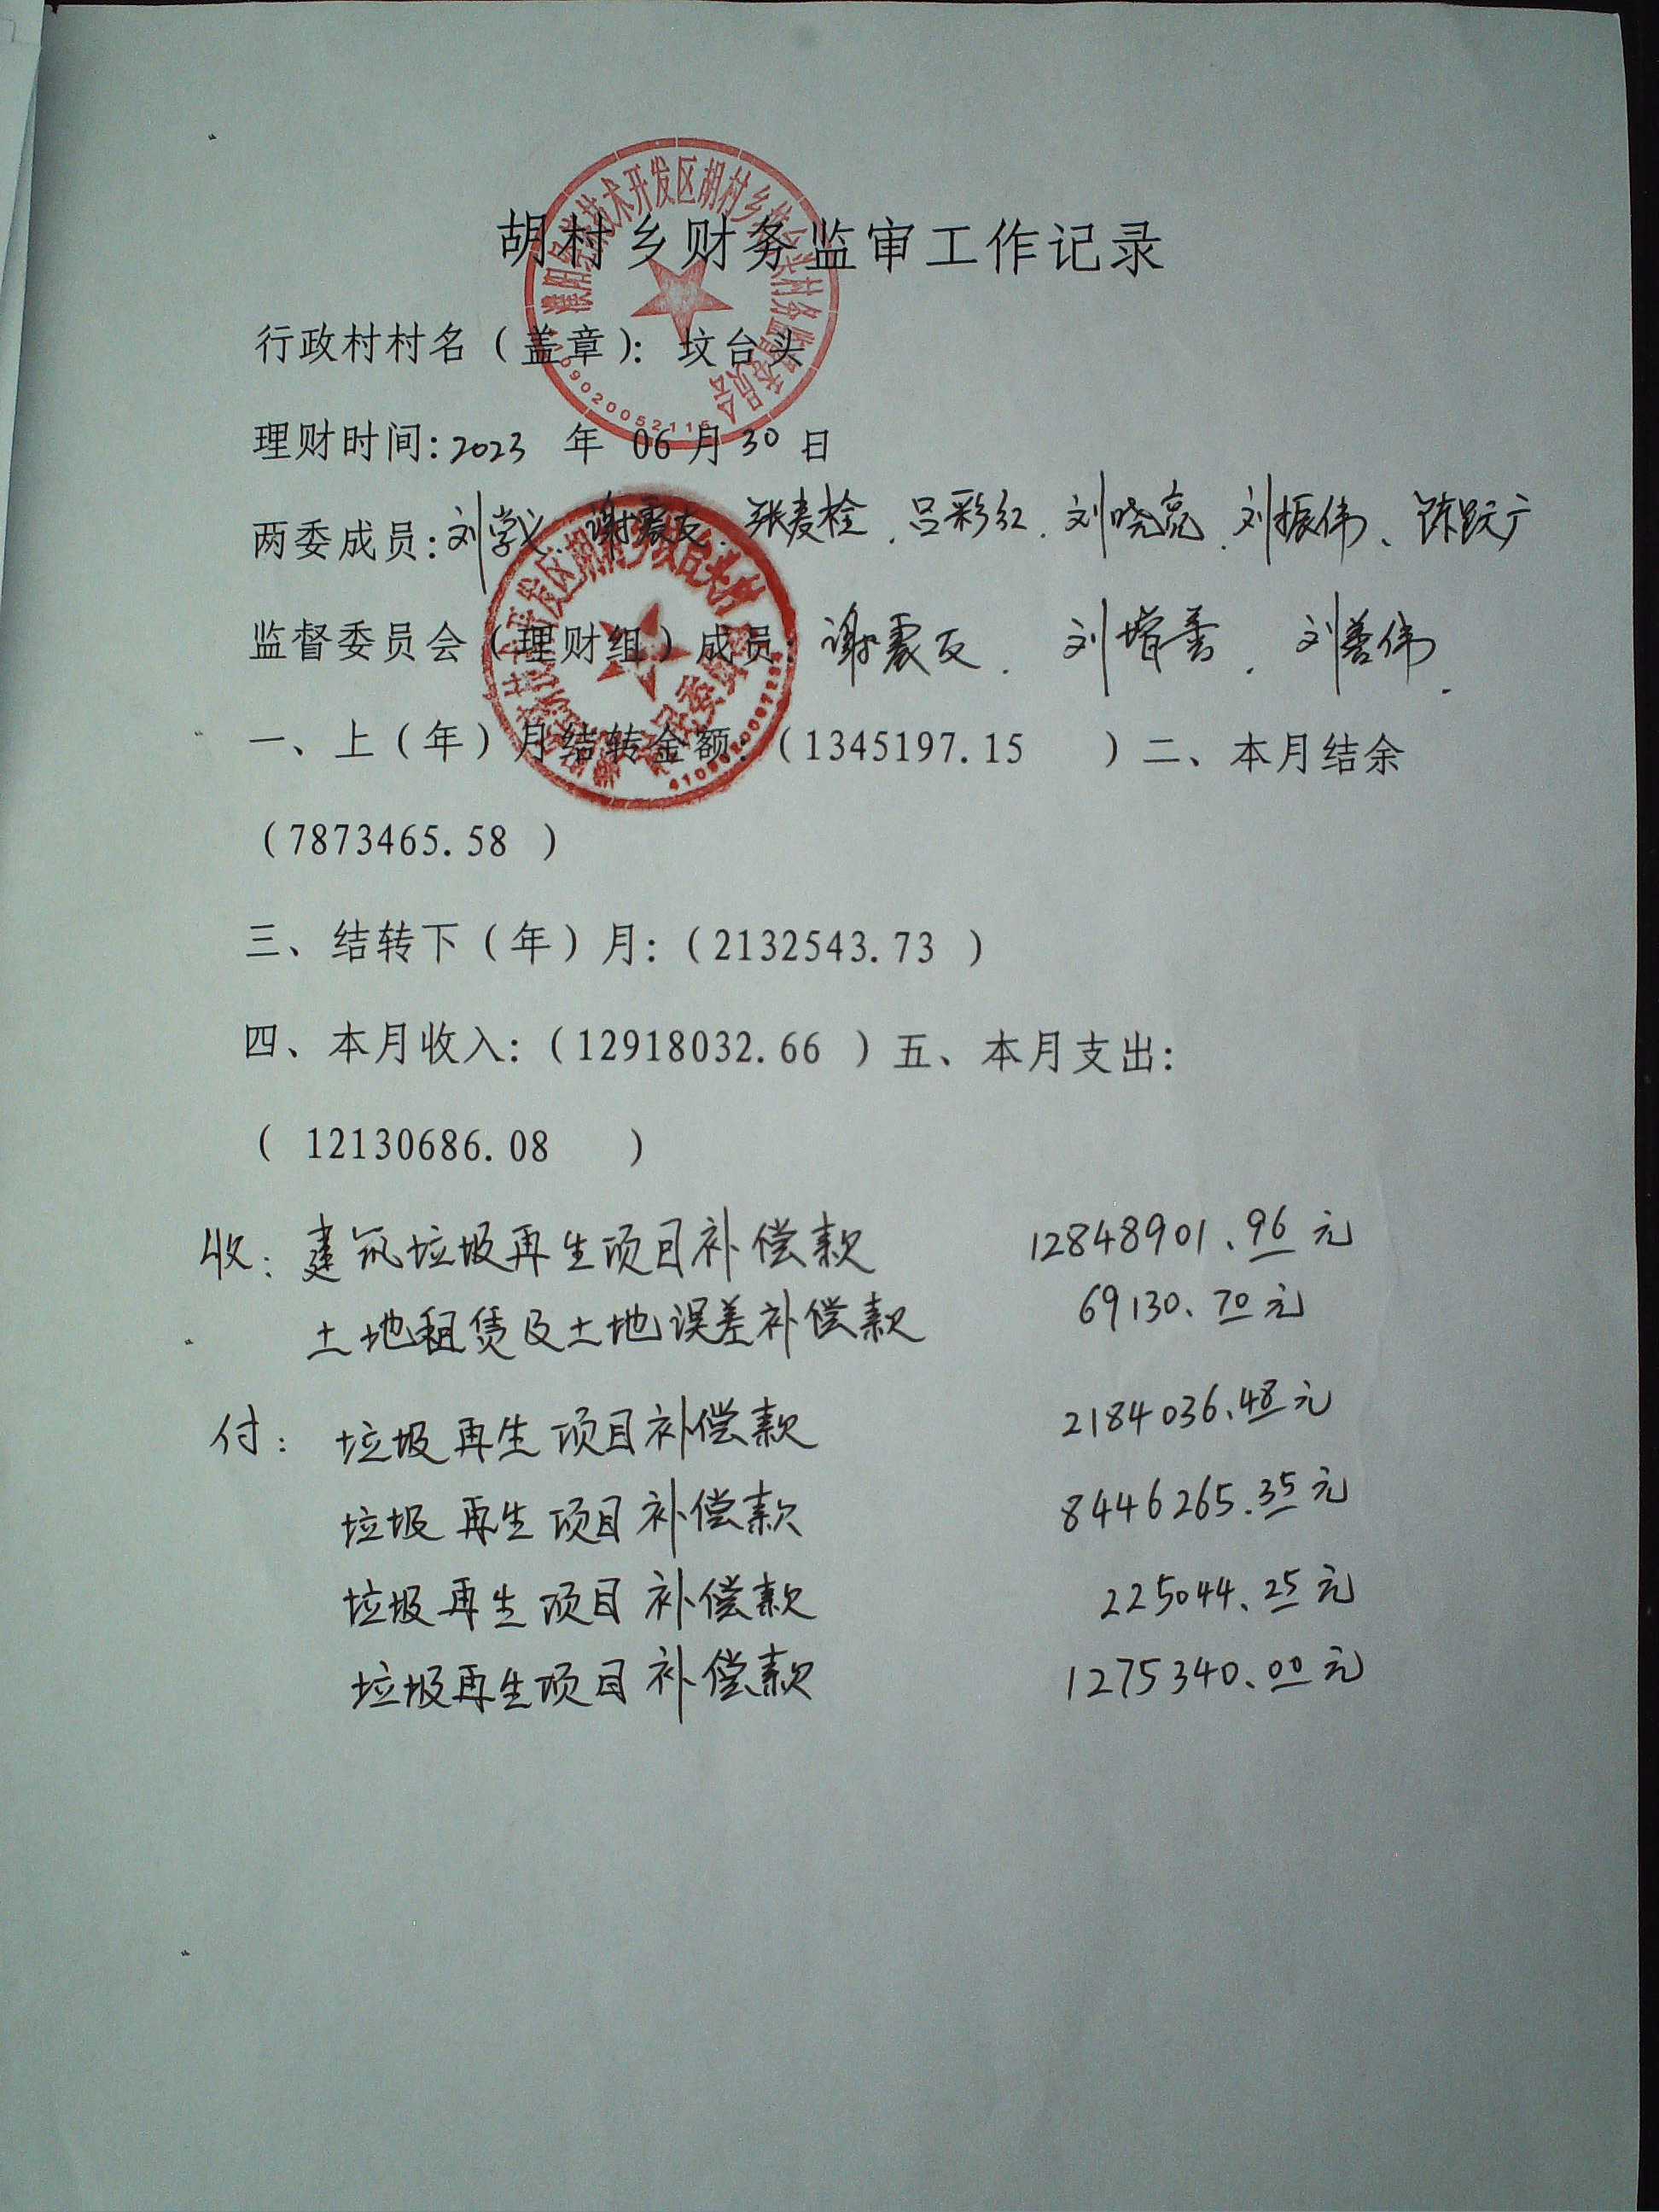 胡村乡财务监审工作记录
行政村村名（盖章）：坟台头
理财时间：2023 年 06月30日
两委成员：刘学义、谢震友、张麦栓、吕彩红、刘晓亮、刘振伟、陈跃广
监督委员会（理财组）成员：谢震友、刘增善、刘善伟.
一、上（年）月结转金额：（1345197.15 ）二、本月结余
（7873465.58 ）
三、结转下（年）月：（2132543.73 ）
四、本月收入：（12918032.66 ）五、本月支出：
（ 12130686.08 ）
收：建筑垃圾再生项目补偿款 12848901.96元
土地租赁及土地误差补偿款 69130.70元
付：垃圾再生项目补偿款 2184036.48元
垃圾再生项目补偿款 8446265.35元
垃圾再生项目补偿款 225044.25元
垃圾再生项目补偿款 1275340.00元